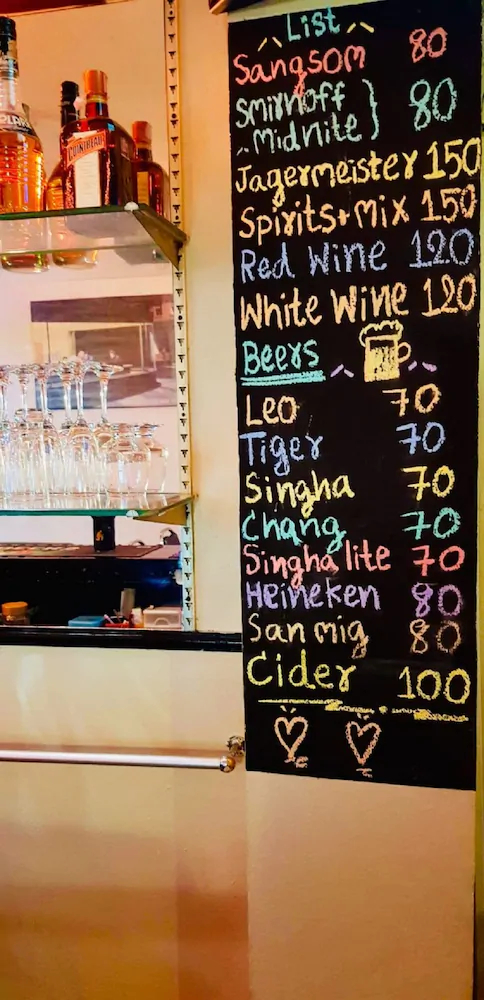 COINTREAU
List
Sangsom 80
Smirnoff
Midnite } 80
Jagermeister 150
Spirits + Mix 150
Red Wine 120
White Wine 120
Beers
Leo 70
Tiger 70
Singha 70
Chang 70
Singha lite 70
Heineken 80
San mig 80
Cider 100